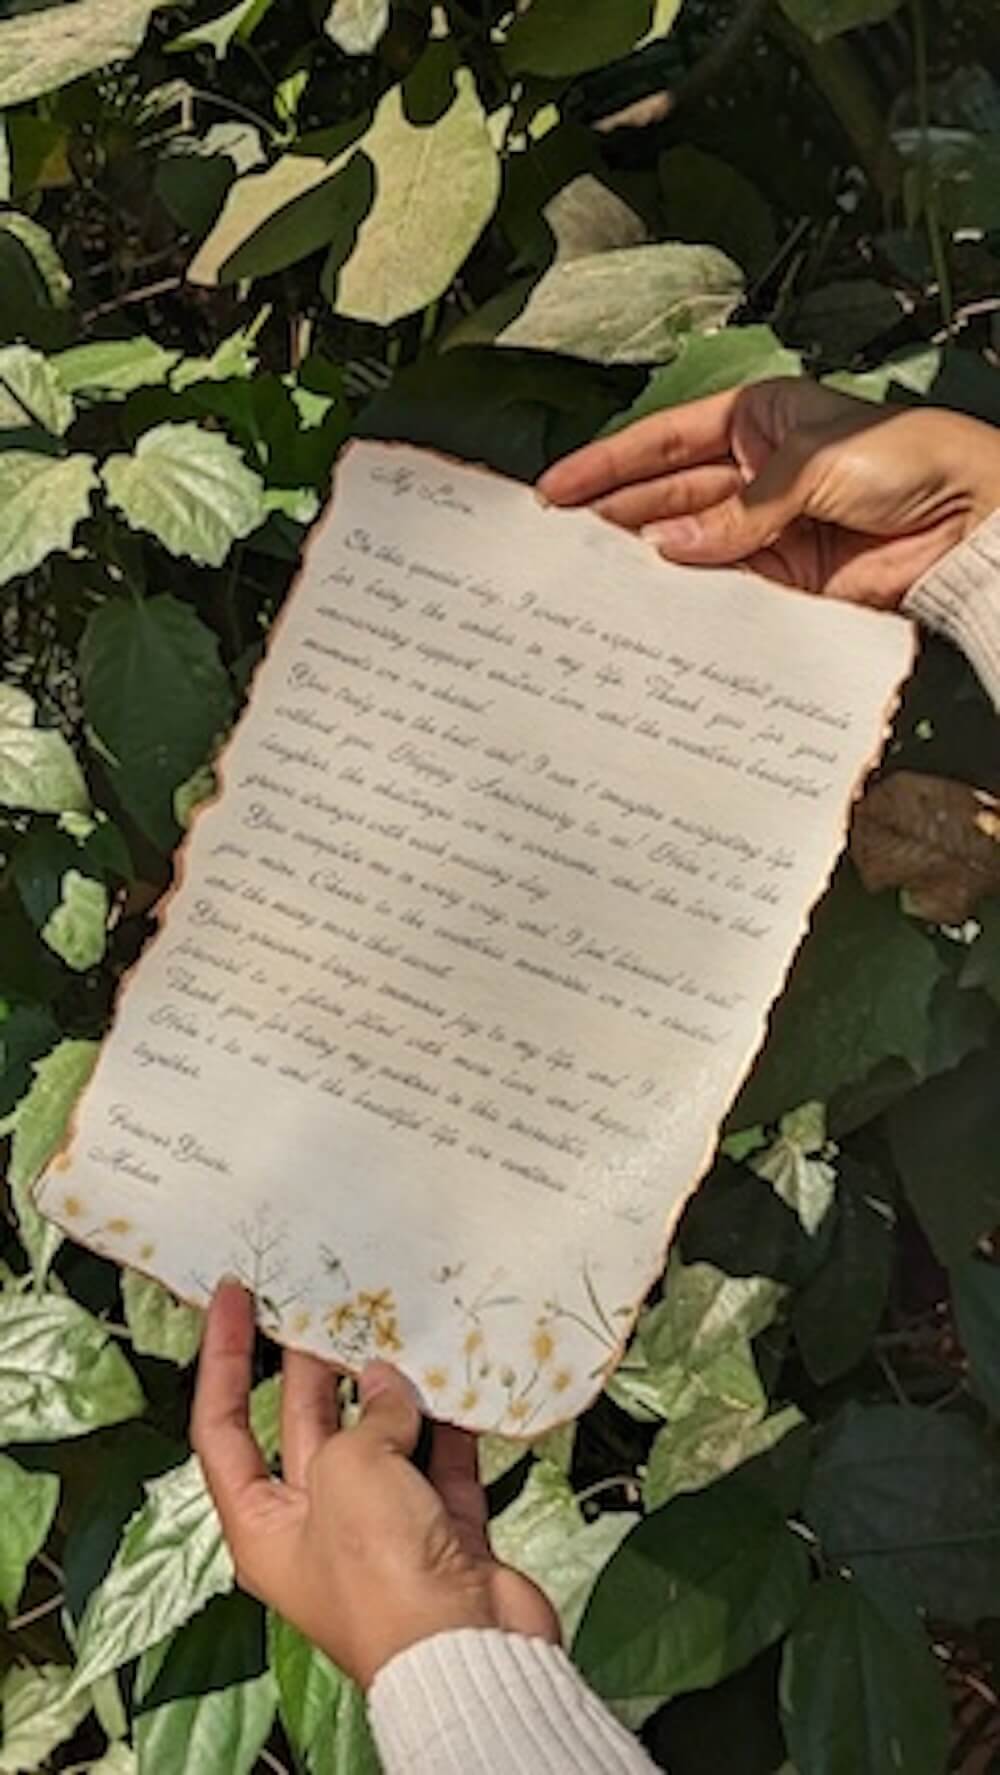 My Love,
On this special day, I want to express my heartfelt gratitude
for being the anchor in my life. Thank you for your
unwavering support, endless love, and the countless beautiful
moments we've shared.
You truly are the best, and I can't imagine navigating life
without you. Happy Anniversary to us! Here's to the
laughter, the challenges we've overcome, and the love that
grows stronger with each passing day.
You complete me in every way, and I feel blessed to call
you mine. Cheers to the countless memories we've created
and the many more that await.
Your presence brings immense joy to my life, and I
forward to a future filled with more love and
Thank you for being my partner in this incredible
Here's to us and the beautiful life we continue
together.
Forever Yours,